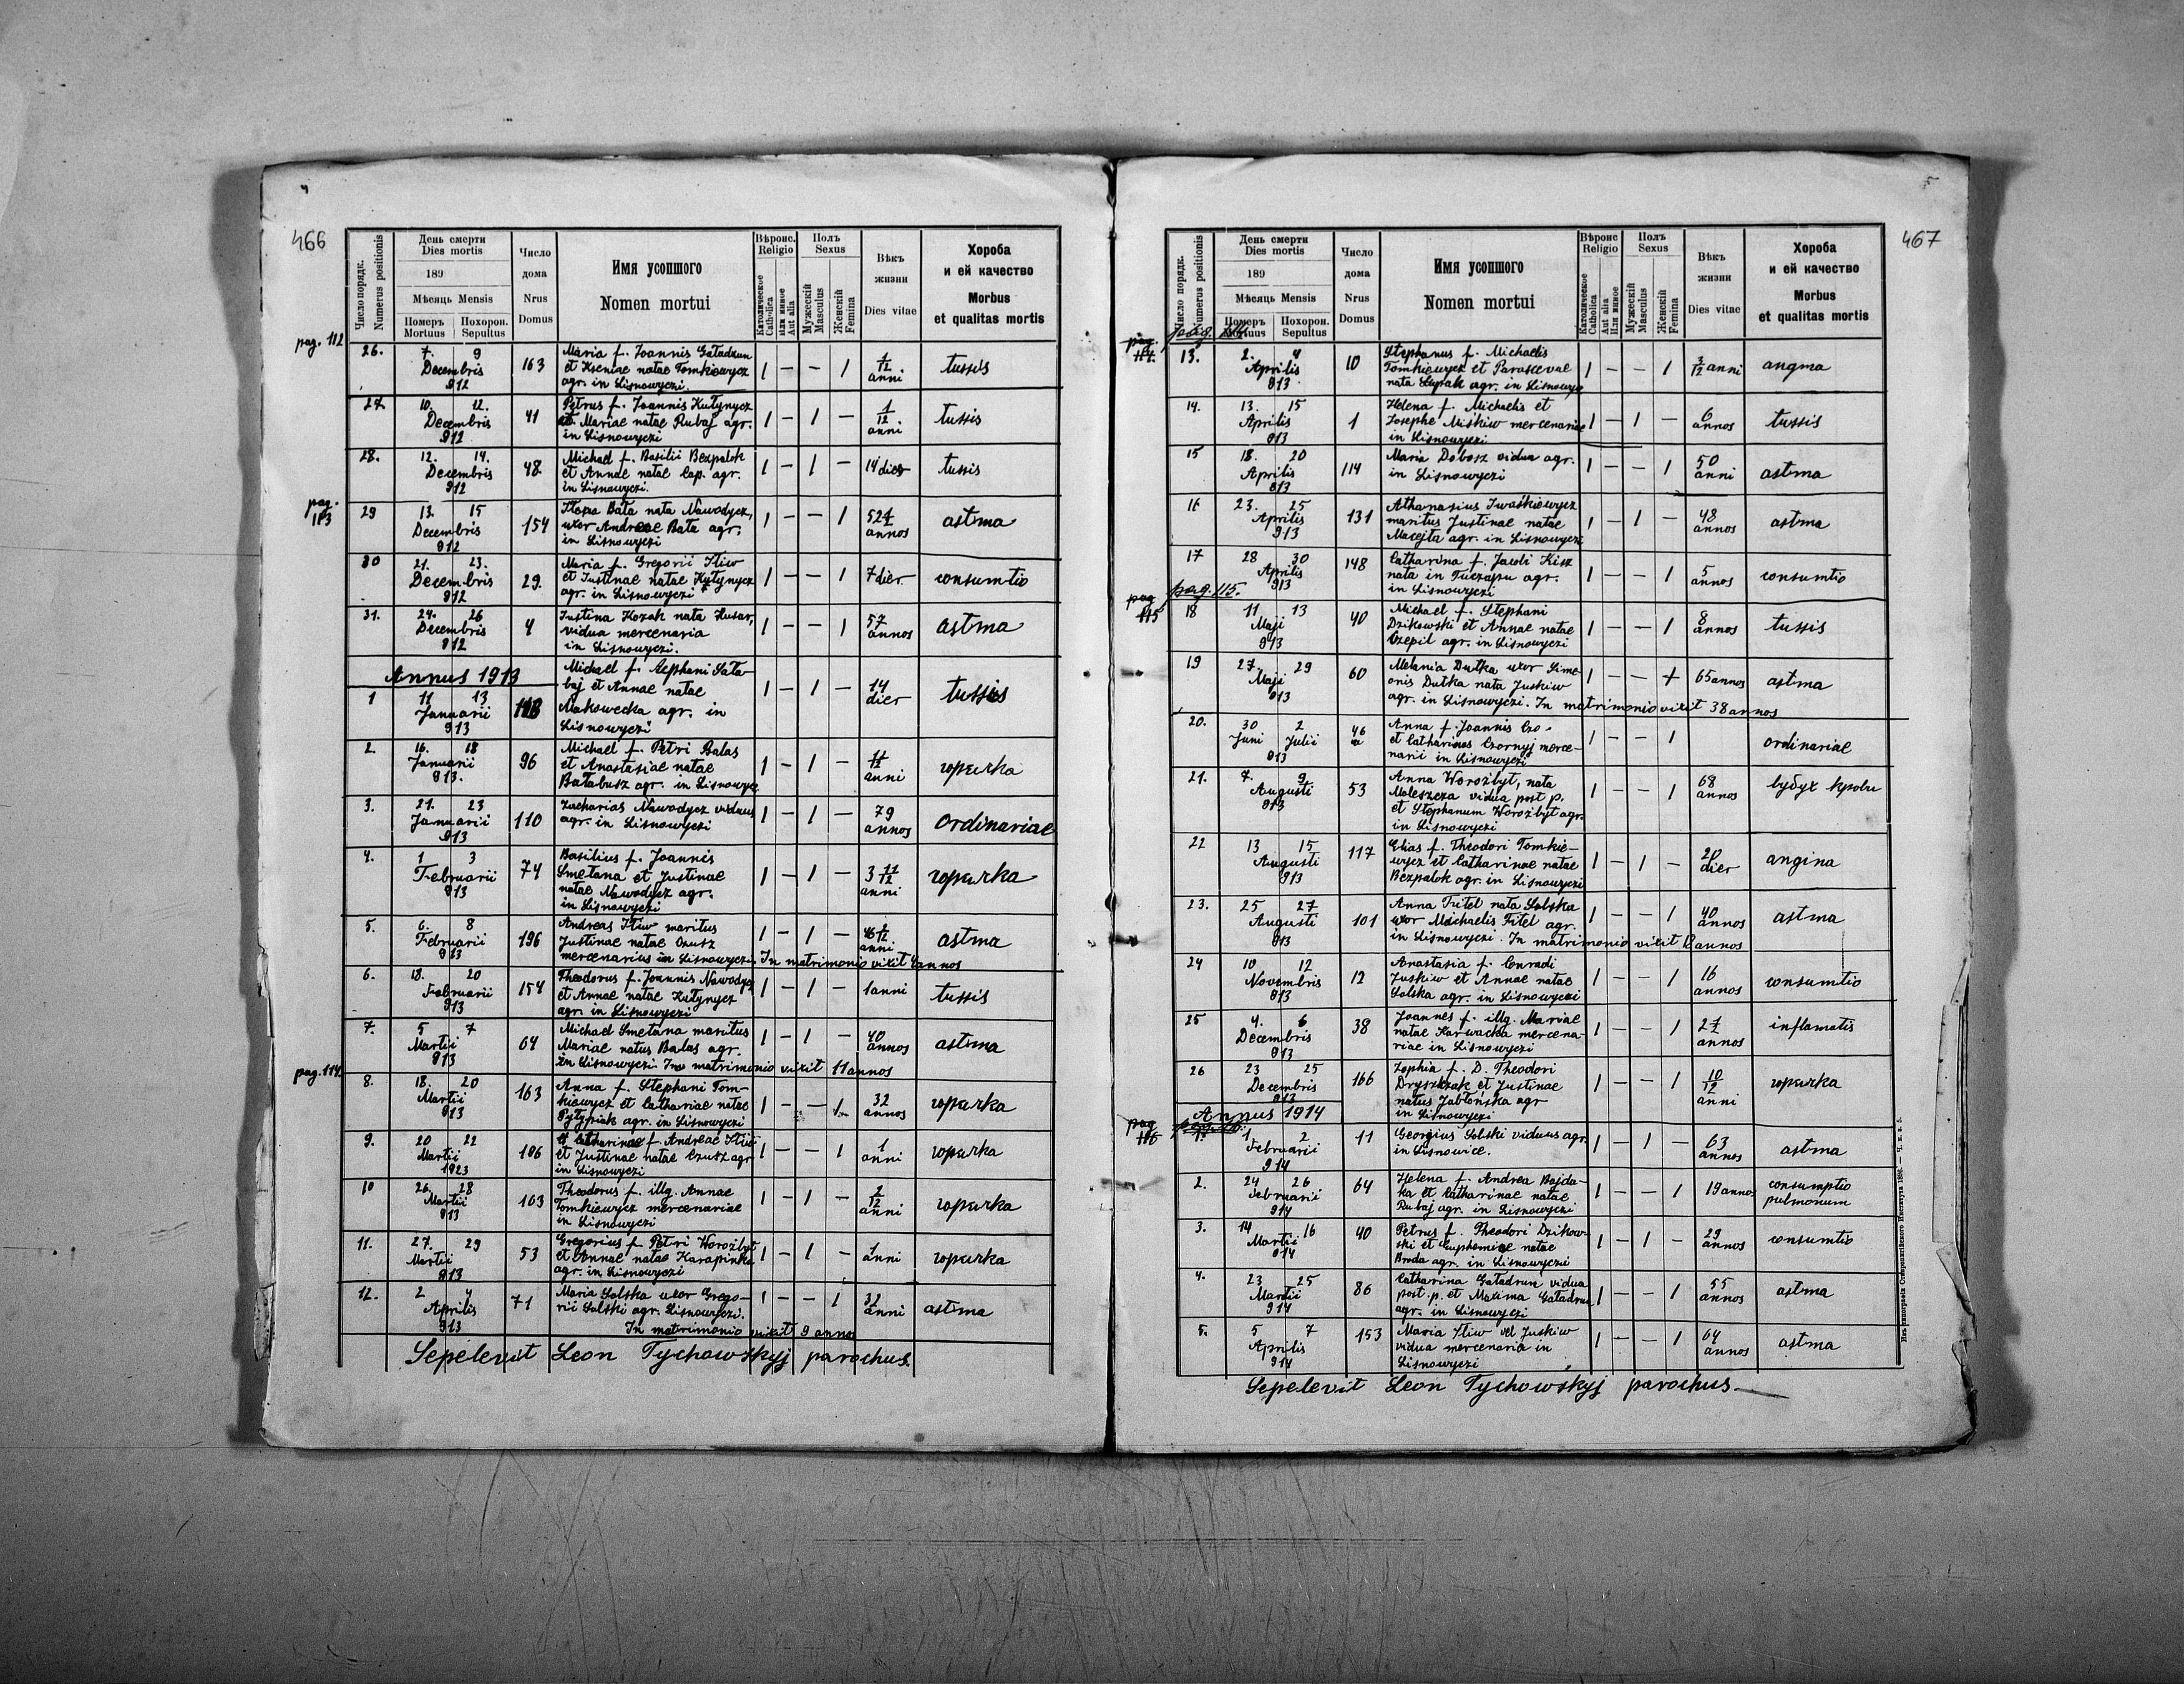 466
Число порядк.
Numerus positionis
День смерти
Dies mortis
189
Мѣсяць Mensis
Померъ Mortuus
Похорон. Sepultus
Число дома
Nrus Domus
Имя усопшого
Nomen mortui
Вѣроис. Religio
Католическое Catholica
Или инное Aut alia
Полъ Sexus
Мужескій Masculus
Женскій Femina
Вѣкъ жизни
Dies vitae
Хороба и ей качество
Morbus et qualitas mortis
pag. 112
26. 7. 9 Decembris 912 163 Maria f. Joannis Gaładzun 1 – – 1 1/12 anni tussis
et Kseniae natae Tomkiewycz
agr. in Lisnowyczi.
27 10. 12. Decembris 912 41 Petrus f. Joannis Kutynycz 1 – 1 – 1/12 anni tussis
et Mariae natae Rubaj agr.
in Lisnowyczi
28. 12. 14. Decembris 912 48 Michael f. Basilii Bezpalok 1 – 1 – 14 dies tussis
et Annae natae Cap. agr.
in Lisnowyczi.
pag. 113
29 13. 15 Decembris 912 154 Bała nata Nawodycz, 1 – – 1 annos astma
uxor Andreae Bała agr.
in Lisnowyczi
30 21. 23. Decembris 912 29. Maria f. Gregorii Iliw 1 – – 1 7 dier consumtio
et Justinae natae Kutynycz
agr. in Lisnowyczi
31. 24. 26 Decembris 912 4 Justina Kozak nata Husar, 1 – – 1 57 annos astma
vidua mercenaria
in Lisnowyczi.
Annus 1913
1 11 13 Januarii 913 Michael f. Stephani 1 – 1 – 14 dier tussis
et Annae natae
Makowecka agr. in
Lisnowyczi
2. 16. 18 Januarii 913. 96 Michael f. Petri Balas 1 – 1 – anni горячка
et Anastasiae natae
Bałabusz agr. in Lisnowycz
3. 21. 23 Januarii 913 110 Zacharias Nawodycz viduus 1 – 1 – 79 annos ordinariae
agr. in Lisnowyczi
4. 1 3 Februarii 913 74 Basilius f. Joannis 1 – 1 – 3 11/12 anni горячка
Smetana et Justinae
natae Nawodycz agr.
in Lisnowyczi
5. 6. 8 Februarii 913 196 Andreas Iliw maritus 1 – 1 – anni astma
Justinae natae
mercenarius in Lisnowyczi. In matrimonio vixit 4 annos
6. 18. 20 Februarii 913 154 Theodorus f. Joannis Nawodycz 1 – 1 – 1 anni tussis
et Annae natae Kutynycz
agr. in Lisnowyczi
7. 5 7 Martii 913 64 Michael Smetana maritus 1 – 1 – 40 annos astma
Mariae natus Balas agr.
in Lisnowyczi. In matrimonio vixit 11 annos
pag. 114.
8. 18. 20 Martii 913 163 Anna f. Stephani Tom- 1 – – 1 32 annos горячка
kiewycz et Cathariae natae
Pyłypiak agr. in Lisnowyczi
9. 20 22 Martii 1923 186 Catharinae f. Andreae Iliw 1 – – 1 1 anni горячка
et Justinae natae Czusz agr
in Lisnowyczi
10 26. 28 Martii 913 163 Theodorus f. illg. Annae 1 – 1 – 2/12 anni горячка
Tomkiewycz mercenariae
in Lisnowyczi
11. 27. 29 Martii 913 53 Gregorius f. Petri Worożbyt 1 – 1 – 1 anni горячка
et Annae natae Karapinka
agr. in Lisnowyczi
12. 2 4 Aprilis 913 71 Maria Solska uxor Grego- 1 – – 1 32 anni astma
rii Solski agr. Lisnowyczi.
In matrimonio vixit 9 annos
Sepelevit Leon Tychowskyj parochus.
5
467
Число порядк.
Numerus positionis
День смерти
Dies mortis
189
Мѣсяць Mensis
Померъ Mortuus
Похорон. Sepultus
Число дома
Nrus Domus
Имя усопшого
Nomen mortui
Вѣроис Religio
Католическое Catholica
Aut alia Или инное
Полъ Sexus
Мужескій Masculus
Женскій Femina
Вѣкъ жизни
Dies vitae
Хороба и ей качество
Morbus et qualitas mortis
pag. 114.
13. 2. 4 Aprilis 913 10 Stephanus f. Michaelis 1 – – 1 3/12 anni angina
Tomkiewycz et Parascevae
nata Łupak agr. in Lisnowycz
14. 13. 15 Aprilis 913 1 Helena f. Michaelis et 1 – 1 – 6 annos tussis
Josephe Miśkiw mercenariae
in Lisnowyczi
15 18. 20 Aprilis 913 114 Maria Dobosz vidua agr. 1 – – 1 50 anni astma
in Lisnowyczi
16 23. 25 Aprilis 913 131 Athanasius Iwaśkiewycz 1 – 1 – 48 annos astma
maritus Justinae natae
Macejta agr. in Lisnowycz
17 28 30 Aprilis 913 148 Catharina f. Jacobi Kisz 1 – – 1 5 annos consumtio
nata in Tuczapu agr.
in Lisnowyczi
pag. 115.
18 11 13 Maji 913 40 Michael f. Stephani 1 – – 1 8 annos tussis
Dzikowski et Annae natae
Czepil agr. in Lisnowyczi
19 27. 29 Maji 913 60 Melania Dutka uxor Sime- 1 – – 1 65 annos astma
onis Dutka nata Juskiw
agr. in Lisnowyczi. In matrimonio vixit 38 annos
20. 30 2 Juni Julii 913 46 Anna f. Joannis Czo- 1 – – 1 ordinariae
et Catharinae Czornyj merce-
narii in Lisnowyczi
21. 7. 9 Augusti 913 53 Anna Worożbyt, nata 1 – – 1 68 annos вубух крови
Maleszcza vidua post p.
et Stephanum Worożbyt agr.
in Lisnowyczi
22 13 15 Augusti 913 117 Elias f. Theodori Tomkie- 1 – 1 – 20 dier angina
wycz et Catharinae natae
Bezpalok agr. in Lisnowyczi
23. 25 27 Augusti 913 101 Anna Fitel nata Solska 1 – – 1 40 annos astma
uxor Michaelis Fitel agr.
in Lisnowyczi. In matrimonio vixit 18 annos
24 10 12 Novembris 913 12 Anastasia f. Conradi 1 – – 1 16 annos consumtio
Juskiw et Annae natae
Solska agr. in Lisnowyczi
25 4. 6 Decembris 913 38 Joannes f. illg. Mariae 1 – – 1 annos inflamatis
natae Karwacka mercena-
riae in Lisnowyczi
26 23 25 Decembris 913 166 Zophia f. D. Theodori 1 – – 1 10/12 anni горячка
et Justinae
natus Jabłońska agr
in Lisnowyczi
Annus 1914
pag. 116
1. 1 2 Februarii 914 11 Georgius Solski viduus agr. 1 – 1 – 63 annos astma
in Lisnowice.
2. 24 26 Februarii 914 64 Helena f. Andrea Bajda- 1 – – 1 19 annos consumptio pulmonum
ka et Catharinae natae
Rubaj agr. in Lisnowyczi
3. 14 16 Martii 914 40 Petrus f. Theodori Dzikow- 1 – 1 – 29 annos consumtio
ski et Euphemiae natae
Broda agr. in Lisnowyczi
4. 23 25 Martii 914 86 Catharina Gaładzun vidua 1 – – 1 55 annos astma
post. p. et Maxima Gaładzun
agr. in Lisnowyczi
5. 5 7 Aprilis 914 153 Maria Iliw vel Juskiw 1 – – 1 64 annos astma
vidua mercenaria in
Lisnowyczi
Sepelevit Leon Tychowskyj parochus
Изъ типографіи Ставропигійского Института 1896. — Ч. к. в. 5.